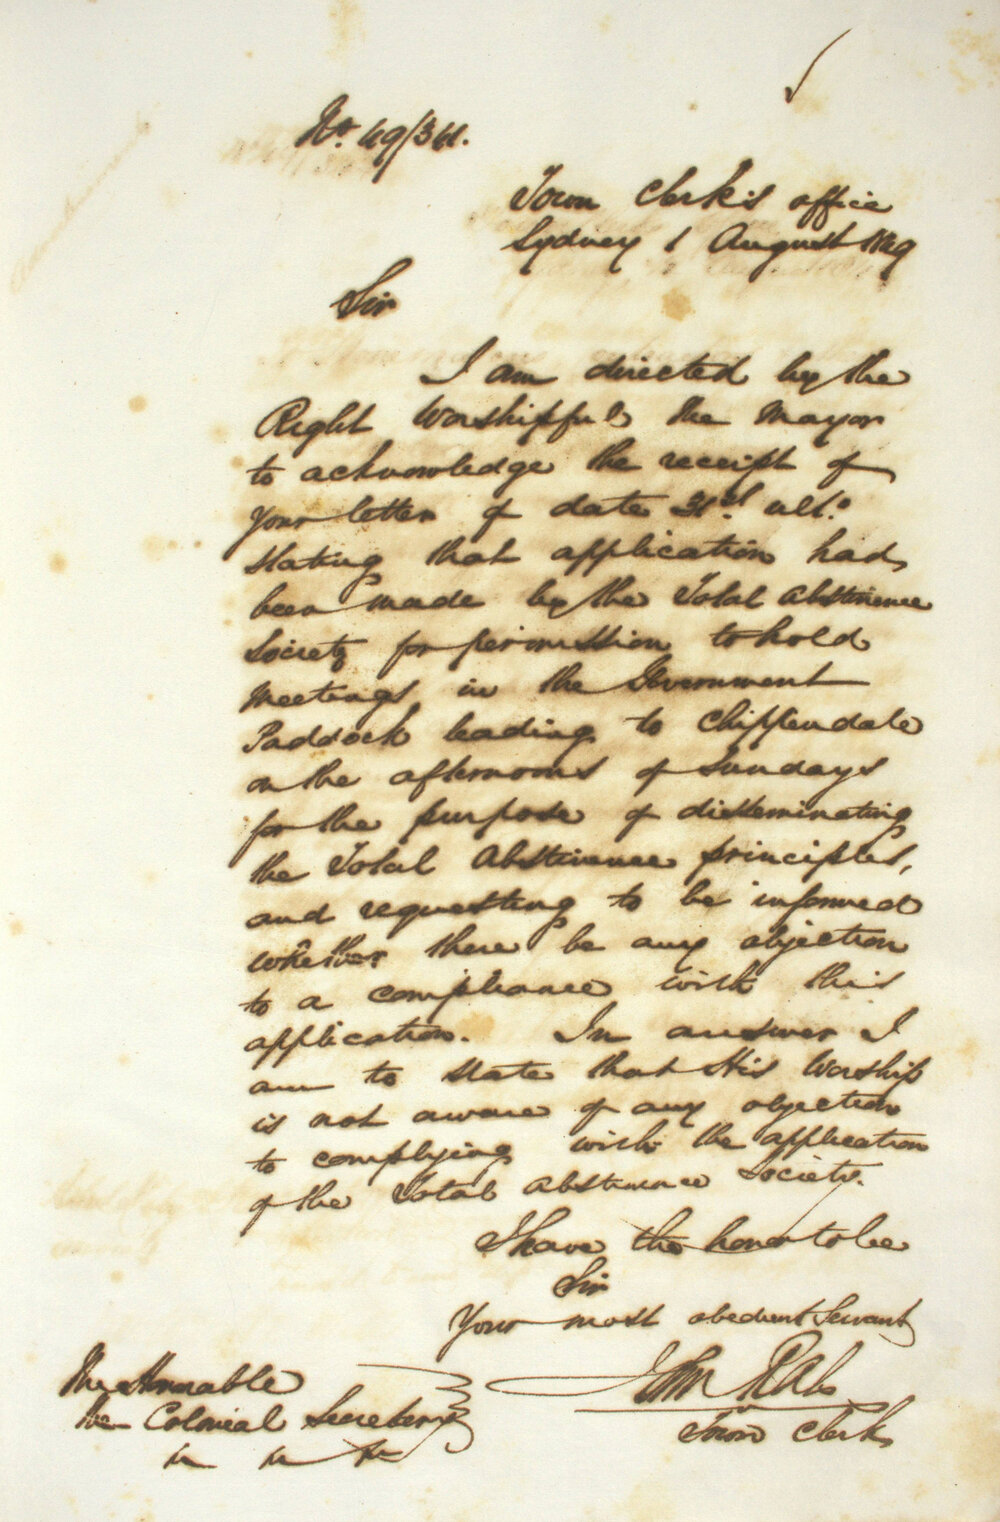 No. 49/361.
Town Clerk's office
Sydney 1 August 1849
Sir
I am directed by the
Right Worshipful the Mayor
to acknowledge the receipt of
your letter of date 31st ulto.
stating that application had
been made by the Total Abstinence
Society for permission to hold
Meetings in the Government
Paddock leading to Chippendale
on the afternoons of Sundays
for the purpose of disseminating
the Total Abstinence principles,
and requesting to be informed
whether there be any objection
to a compliance with this
application. In answer I
am to state that His Worship
is not aware of any objection
to complying with the application
of the Total Abstinence Society.
I have the honor to be
Sir
Your most obedient Servant
John Rae
Town Clerk
The Honorable
the Colonial Secretary